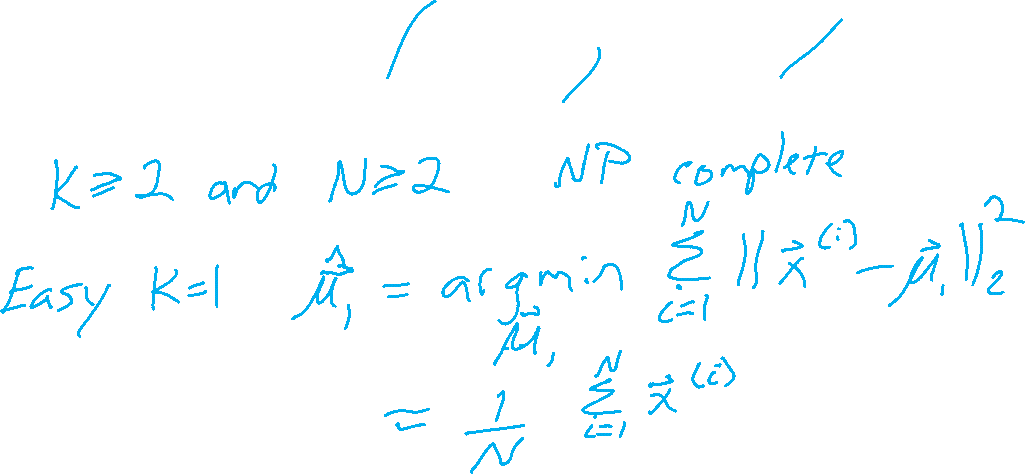 K ≥ 2 and N ≥ 2 NP complete
Easy K=1 $\hat{\vec{\mu}}_1 = \operatorname{argmin}_{\vec{\mu}_1} \sum_{i=1}^{N} \| \vec{x}^{(i)} - \vec{\mu}_1 \|_2^2$
$= \frac{1}{N} \sum_{i=1}^{N} \vec{x}^{(i)}$